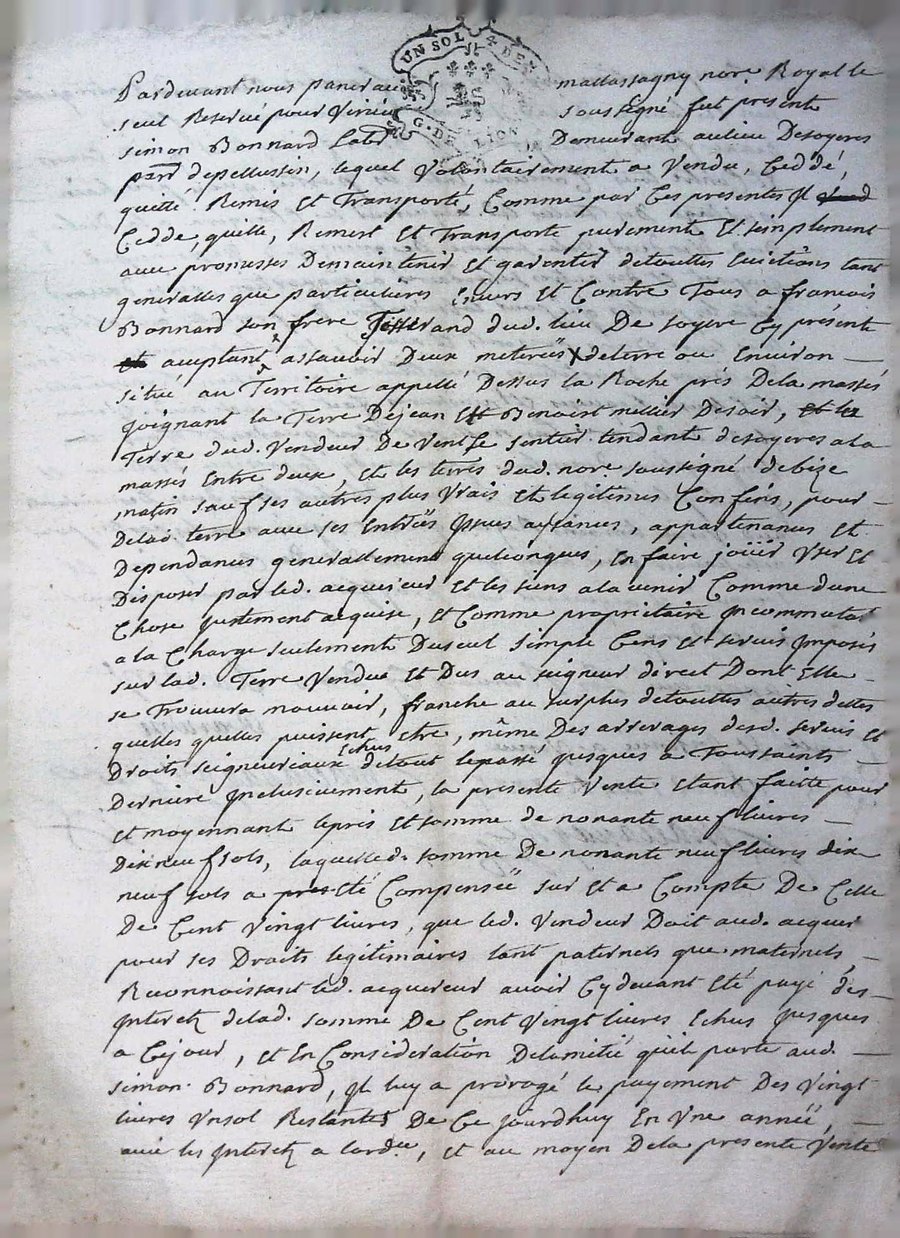 UN SOL 4 DEN
G. DE LION
Pardevant nous pancrau mattassagny nore Royal le
seul Reservé pour Virieu soussigné fut presente
simon Bonnard Labr Demeurant au lieu Desoyeres
parr depellussin, lequel Volontairement a Vendu, Ceddé,
quitté Remis Et Transporté, Comme par Ces presentes Il
Cedde, quitte, Remest Et Transporte purement Et simplement
aux promesses Demaintenir Et garentir detouttes Evictions tant
generalles que particulieres Envers Et Contre Tous a francois
Bonnard son frere Tisserand dud. lieu De soyere Cy présente
acceptant assavoir Deux meterëes deterre ou Environ
situé au Territoire appellé Dessus la Roche prés Dela massés
joignant la Terre Dejean Et Benoist mellier Desoir, et la
Terre dud. Vendeur De Vent Le sentier tendant desoyeres a la
massés Entre deux, Et les terres dud. nore soussigné debize
matin sauf ses autres plus Vrais Et legitimes Confins, pour
Delad. terre aux ses Entrëes Issues aysances, appartenances Et
Dependances generallement quelconques, En faire joüir User Et
Disposer par led. acquereur Et les siens a lavenir Comme dune
Chose justement acquise, Et Comme propriétaire Incommutat
a la Charge seulement Duseul simple Cens Et servis Imposés
sur lad. Terre Vendue Et Dus au seigneur direct Dont Elle
se Trouvera mouvoir, franche au surplus detouttes autres dettes
quelles quelles puissent Etre, même Des arrerages desd. servis Et
Droits seigneuriaux Echus detout lepassé jusques a Toussaints
Derniere Inclusivement, la presente Vente Etant faitte pour
Et moyennant leprix Et somme de nonante neuf livres
Dixneuf sols, laquelled. somme De nonante neuf livres dix
neuf sols a Eté Compensëe sur Et a Compte De Celle
De Cent Vingt livres, que led. Vendeur Doit aud. acquer
pour ses Droits legitimaires tant paternels que maternels
Reconnoissant led. acquereur avoir Cydevant Eté payé des
Interetz delad. somme De Cent Vingt livres Echus jusques
a Cejour, Et En Consideration Delamitié quil porte aud.
simon Bonnard, Il luy a prorogé le payement Des Vingt
livres Unsol Restantes De Ce jourdhuy En Une annëe,
avec les Interetz a lordre, Et au moyen Dela presente Vente